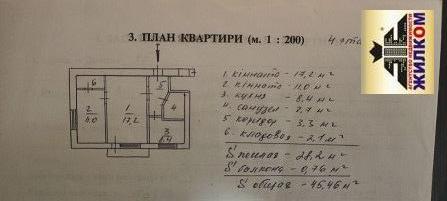 3. ПЛАН КВАРТИРИ (м. 1 : 200)
4 эта
ЖИЛКОМ
1. кімната – 17,2 м²
2. кімната – 11,0 м²
3. кухня – 8,4 м²
4. санузел – 2,7 м²
5. коридор – 3,3 м²
6. кладовая – 2,1 м²
S жилая – 28,2 м²
S балкона – 0,76 м²
S общая – 45,46 м²
6
5
2
1
4
17,2
3
8,4